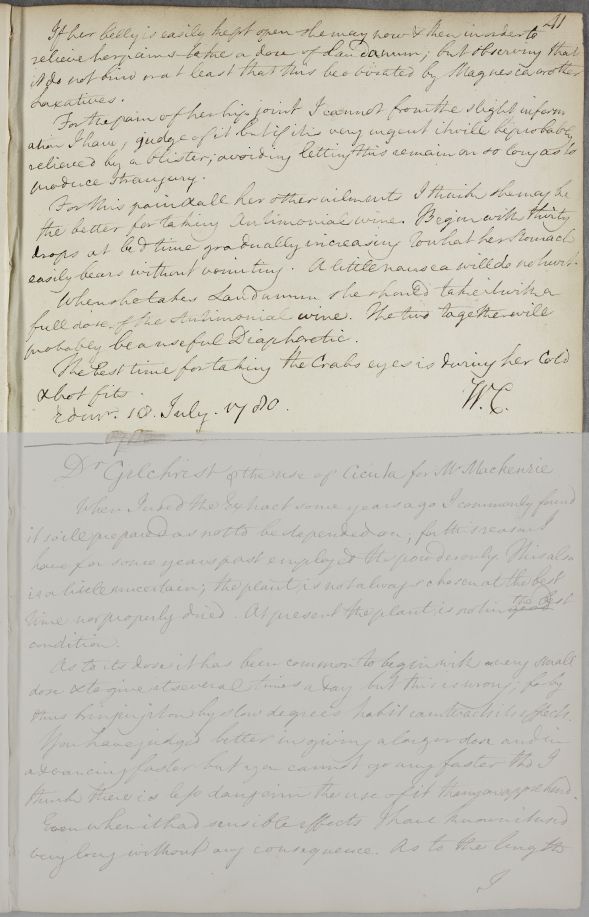 41
If her belly is easily kept open she may now & then in order to
relieve her pains take a dose of Laudanum; but observing that
it do not bind or at least that this be obviated by Magnesia or other
Laxatives.
For the pain of her hip joint I cannot from the slight inform
ation I have, judge of it but if it is very urgent it will be probably
relieved by a blister; avoiding letting this remain on so long as to
produce Strangury.
For this pain & all her other ailments I think she may be
the better for taking Antimonial wine. Begin with thirty
drops at bed time gradually increasing to what her Stomach
easily bears without vomiting. A little nausea will do no hurt.
When she takes Laudanum she should take it with a
full dose of the Antimonial wine. The two together will
probably be a useful Diaphoretic.
The best time for taking the Crabs eyes is during her Cold
& hot fits.
Edinr. 18. July. 1780. W.C.
Dr Gilchrist of the use of Cicuta for Mr Mackenzie
When I used the Extract some years ago I commonly found
it so ile prepared as not to be depended on; for this reason I
have for some years past employed the powder only. This also
is a little uncertain; the plant is not always chosen at the best
time nor properly dried. At present the plant is not in the best
condition.
As to its dose it has been common to begin with a very small
dose & to give it several times a day but this is wrong; for by
thus bringing it on by slow degrees habit counteracts its effects.
You have judged better in giving a larger dose and in
advancing faster but you cannot go any faster tho I
think there is less danger in the use of it than you apprehend.
Even when it had sensible effects I have known it used
very long without any consequence. As to the length
I